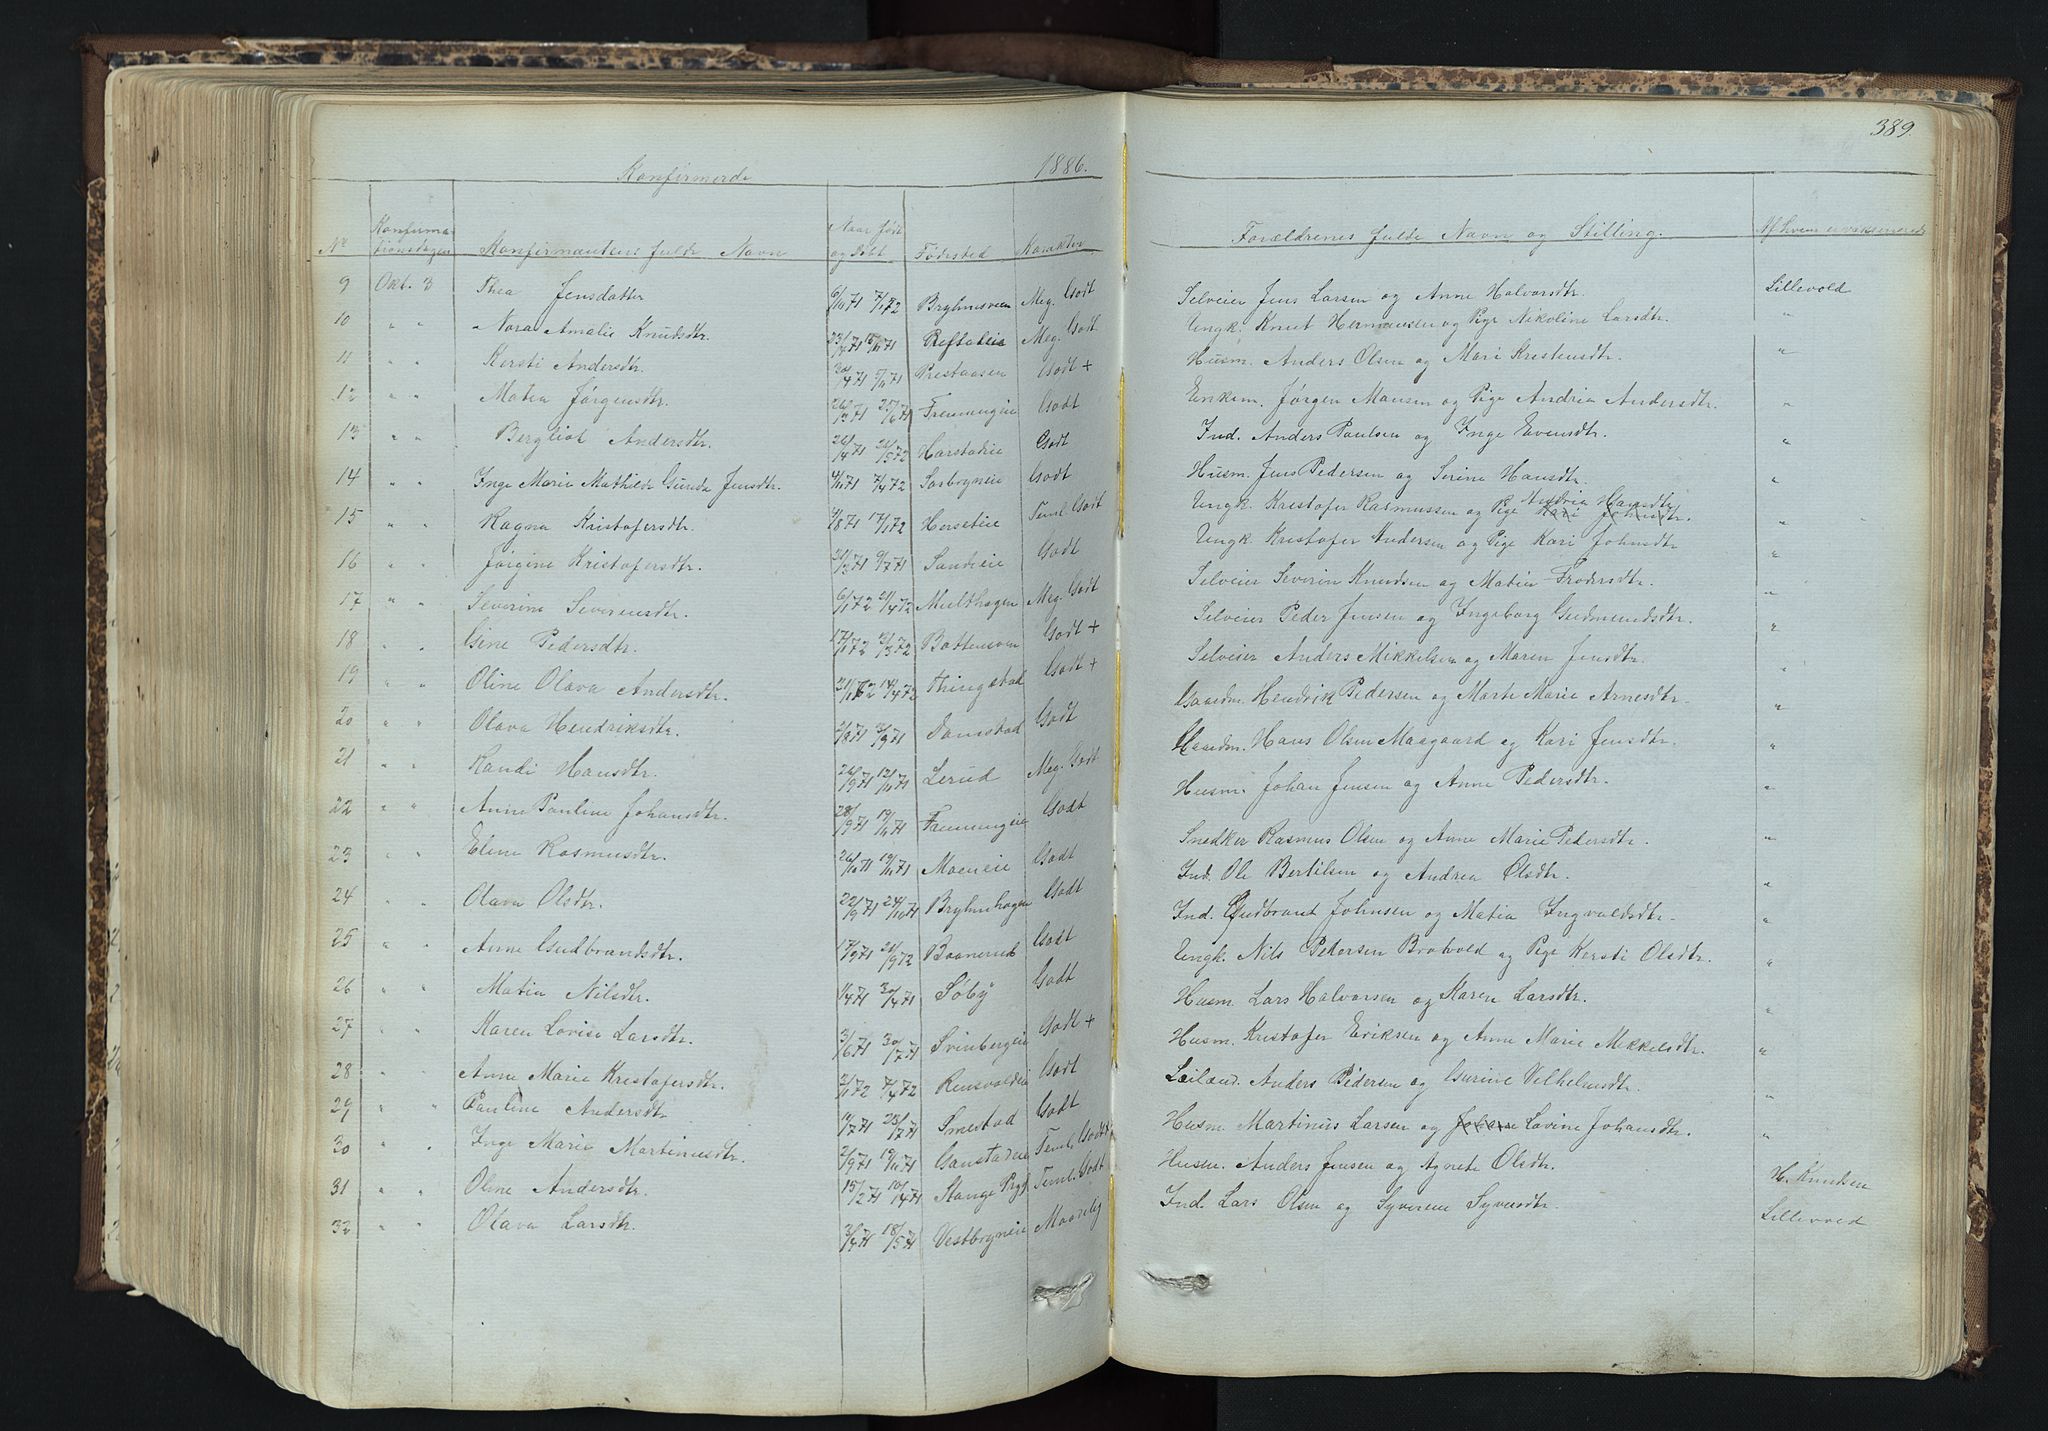 389.
Konfirmerde 1886.
No Konfirmationsdagen Konfirmantens fulde Navn Naar født og døbt Fødested Karakter Forældrenes fulde Navn og Stilling. Af hvem er vaksineret
9 Okt. 3 Thea Jensdatter 6/10 71 7/1 72 Bryhnsveen Meg. Godt Selveier Jens Larsen og Anne Halvorsdtr. Lillevold
10 " " Nora Amalie Knudsdtr. Reftaleie Meg. Godt Ungk. Knut Hermansen og Pige Nikoline Larsdtr. "
11 " " Kersti Andersdtr. Prestaasen Godt + Husm. Anders Olsen og Mari Kristensdtr. "
12 " " Matea Jørgensdtr. Godt Enkem. Jørgen Mansen og Pige Andria Andersdtr. "
13 " " Bergliot Andersdtr. 26/4 71 26/5 72 Harstadeie Godt Ind. Anders Paulsen og Inge Evensdtr. "
14 " " Inge Marie Mathilde Gunda Jensdtr. 4/11 71 7/4 72 Sorbryneie Godt Husm. Jens Pedersen og Serine Hansdtr. "
15 " " Ragna Kristofersdtr. 17/1 72 Herseteie Teml. Godt Ungk. Kristofer Rasmussen og Pige Kari Johnsdtr. Andria Hansdtr. "
16 " " Jørgine Kristofersdtr. 31/3 71 9/7 71 Sandeie Godt Ungk. Kristofer Andersen og Pige Kari Johnsdtr "
17 " " Severine Severensdtr. 6/1 72 21/4 72 Multhagen Meg. Godt Selveier Severin Knudsen og Matea Frodersdtr. "
18 " " Gine Pedersdtr. 17/1 72 31/3 72 Battensven Godt + Selveier Peder Jensen og Ingeborg Gudmundsdtr. "
19 " " Oline Olava Andersdtr. 14/4 72 Thingstad Godt + Selveier Anders Mikkelsen og Maren Jensdtr. "
20 " " Olava Hendriksdtr. 3/9 71 Damstad Godt Gaardm. Hendrik Pedersen og Marte Marie Arnesdtr. "
21 " " Randi Hansdtr. 26/9 71 12/11 71 Lerud Meg. Godt Gaardm. Hans Olsen Maagaard og Kari Jensdtr. "
22 " " Anne Pauline Johansdtr. 28/9 71 19/11 71 Godt Husm. Johan Jensen og Anne Pedersdtr. "
23 " " Eline Rasmusdtr. 26/10 71 19/11 71 Moeneie Godt Snedker Rasmus Olsen og Anne Marie Pedersdtr. "
24 " " Olava Olsdtr. 22/9 71 24/10 71 Bryhnhagen Godt Ind. Ole Bertilsen og Andrea Olsdtr. "
25 " " Anne Gudbrandsdtr. 17/9 71 21/9 72 Baanerud Godt Ind. Gudbrant Johnsen og Matia Ingvaldsdtr. "
26 " " Matia Nilsdtr. 1/4 71 30/4 71 Søby Godt Ungk. Nils Pedersen Bratvold og Pige Kersti Olsdtr. "
27 " " Karen Lovise Larsdtr. 3/6 71 30/7 71 Svinbergeie Godt + Husm Lars Halvorsen og Karen Larsdtr. "
28 " " Anne Marie Kristofersdtr. 2/1 72 7/4 72 Rensvoldeie Godt Husm. Kristofer Eriksen og Anne Marie Mikkelsdtr. "
29 " " Pauline Andersdtr 23/7 71 Smestad Godt Leiland. Anders Pedersen og Gurine Vilhelmsdtr. "
30 " " Inge Marie Martinusdtr. 2/9 71 19/11 71 Ganstadeie Teml. Godt + Husm Martinus Larsen og Johane Lovine Johansdtr. "
31 " " Oline Andersdtr. 15/2 71 10/4 71 Stange Prgt. Teml. Godt Husm. Anders Jensen og Agnete Olsdtr. H. Knudsen
32 " " Olava Larsdtr. 3/4 71 18/5 71 Vestbryneie Maadelig Ind. Lars Olsen og Syverine Syversdtr. Lillevold